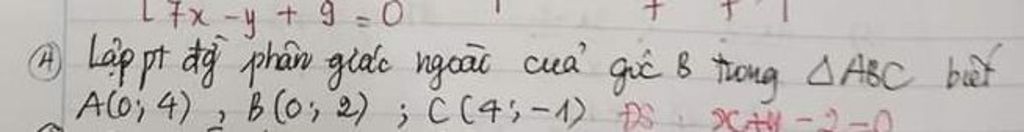 7x - y + 9 = 0
④ Lập pt đg phân giác ngoài của góc B trong △ABC biết
A(0; 4) , B(0; 2) ; C(4; -1) ĐS : x+y-2=0